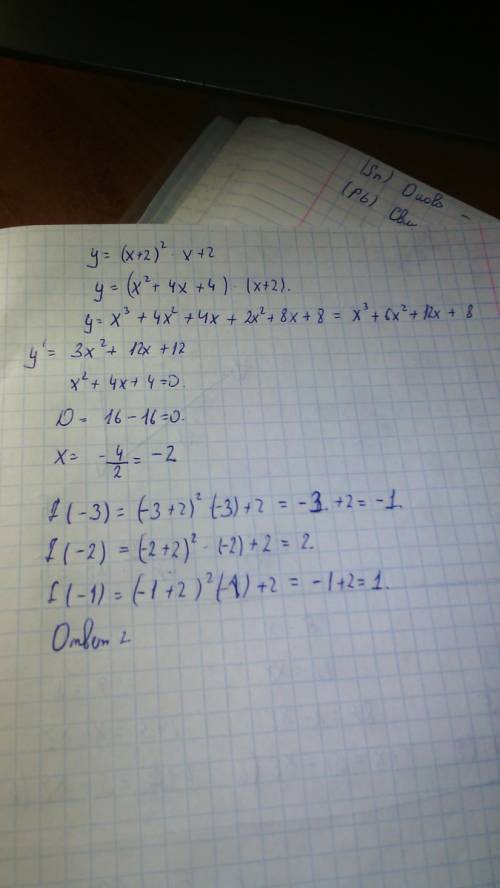 (Sn) Олово -
(Pb) Сви
y = (x+2)² · x+2
y = (x² + 4x + 4) · (x+2).
y = x³ + 4x² + 4x + 2x² + 8x + 8 = x³ + 6x² + 12x + 8
y' = 3x² + 12x + 12
x² + 4x + 4 = 0.
D = 16 - 16 = 0.
x = -4/2 = -2
f(-3) = (-3+2)² (-3) + 2 = -3 + 2 = -1.
f(-2) = (-2+2)² · (-2) + 2 = 2.
f(-1) = (-1+2)² (-1) + 2 = -1+2 = 1.
Ответ 2